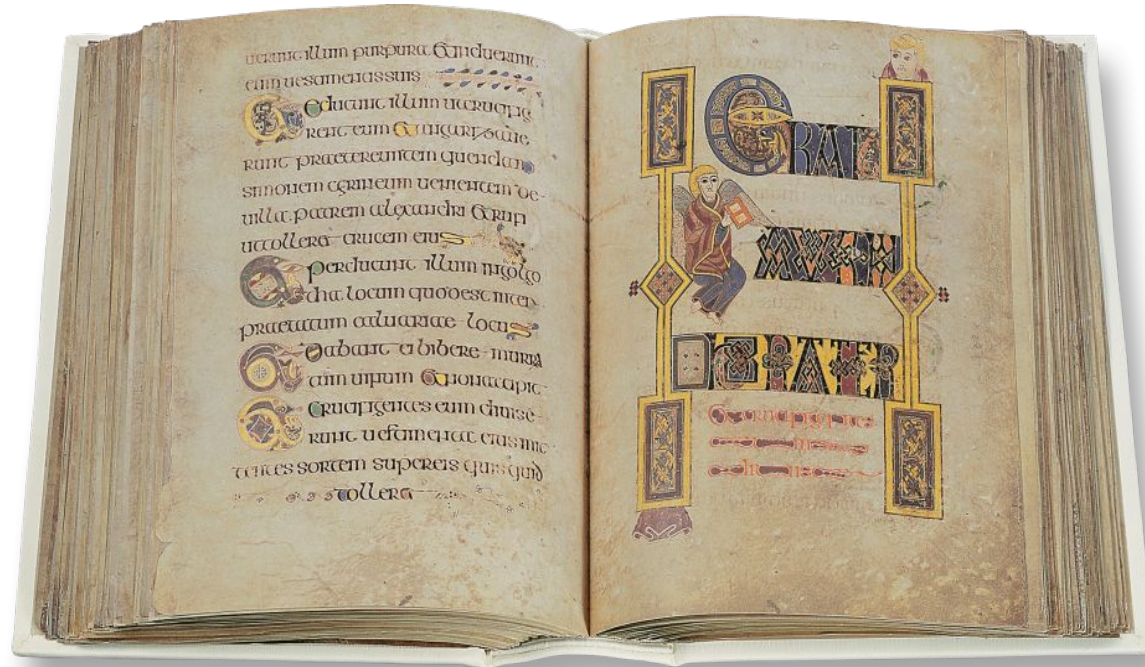 uerunt illum purpura & induerunt
eum uestimentis suis
Et educunt illum ut crucifig
erent eum & angariaue
runt praetereuntem quendam
simonem cyrineum uenientem de
uilla patrem alexandri & rufi
ut tolleret crucem eius
Et perducunt illum in golgo
tha locum quod est inter
praetatum caluariae locus
Et dabant ei bibere murra
tum uinum & non accipit
Et crucifigentes eum diuise
runt uestimenta eius mit
tentes sortem super eis quis quid
tolleret
ERAT
AUTEM